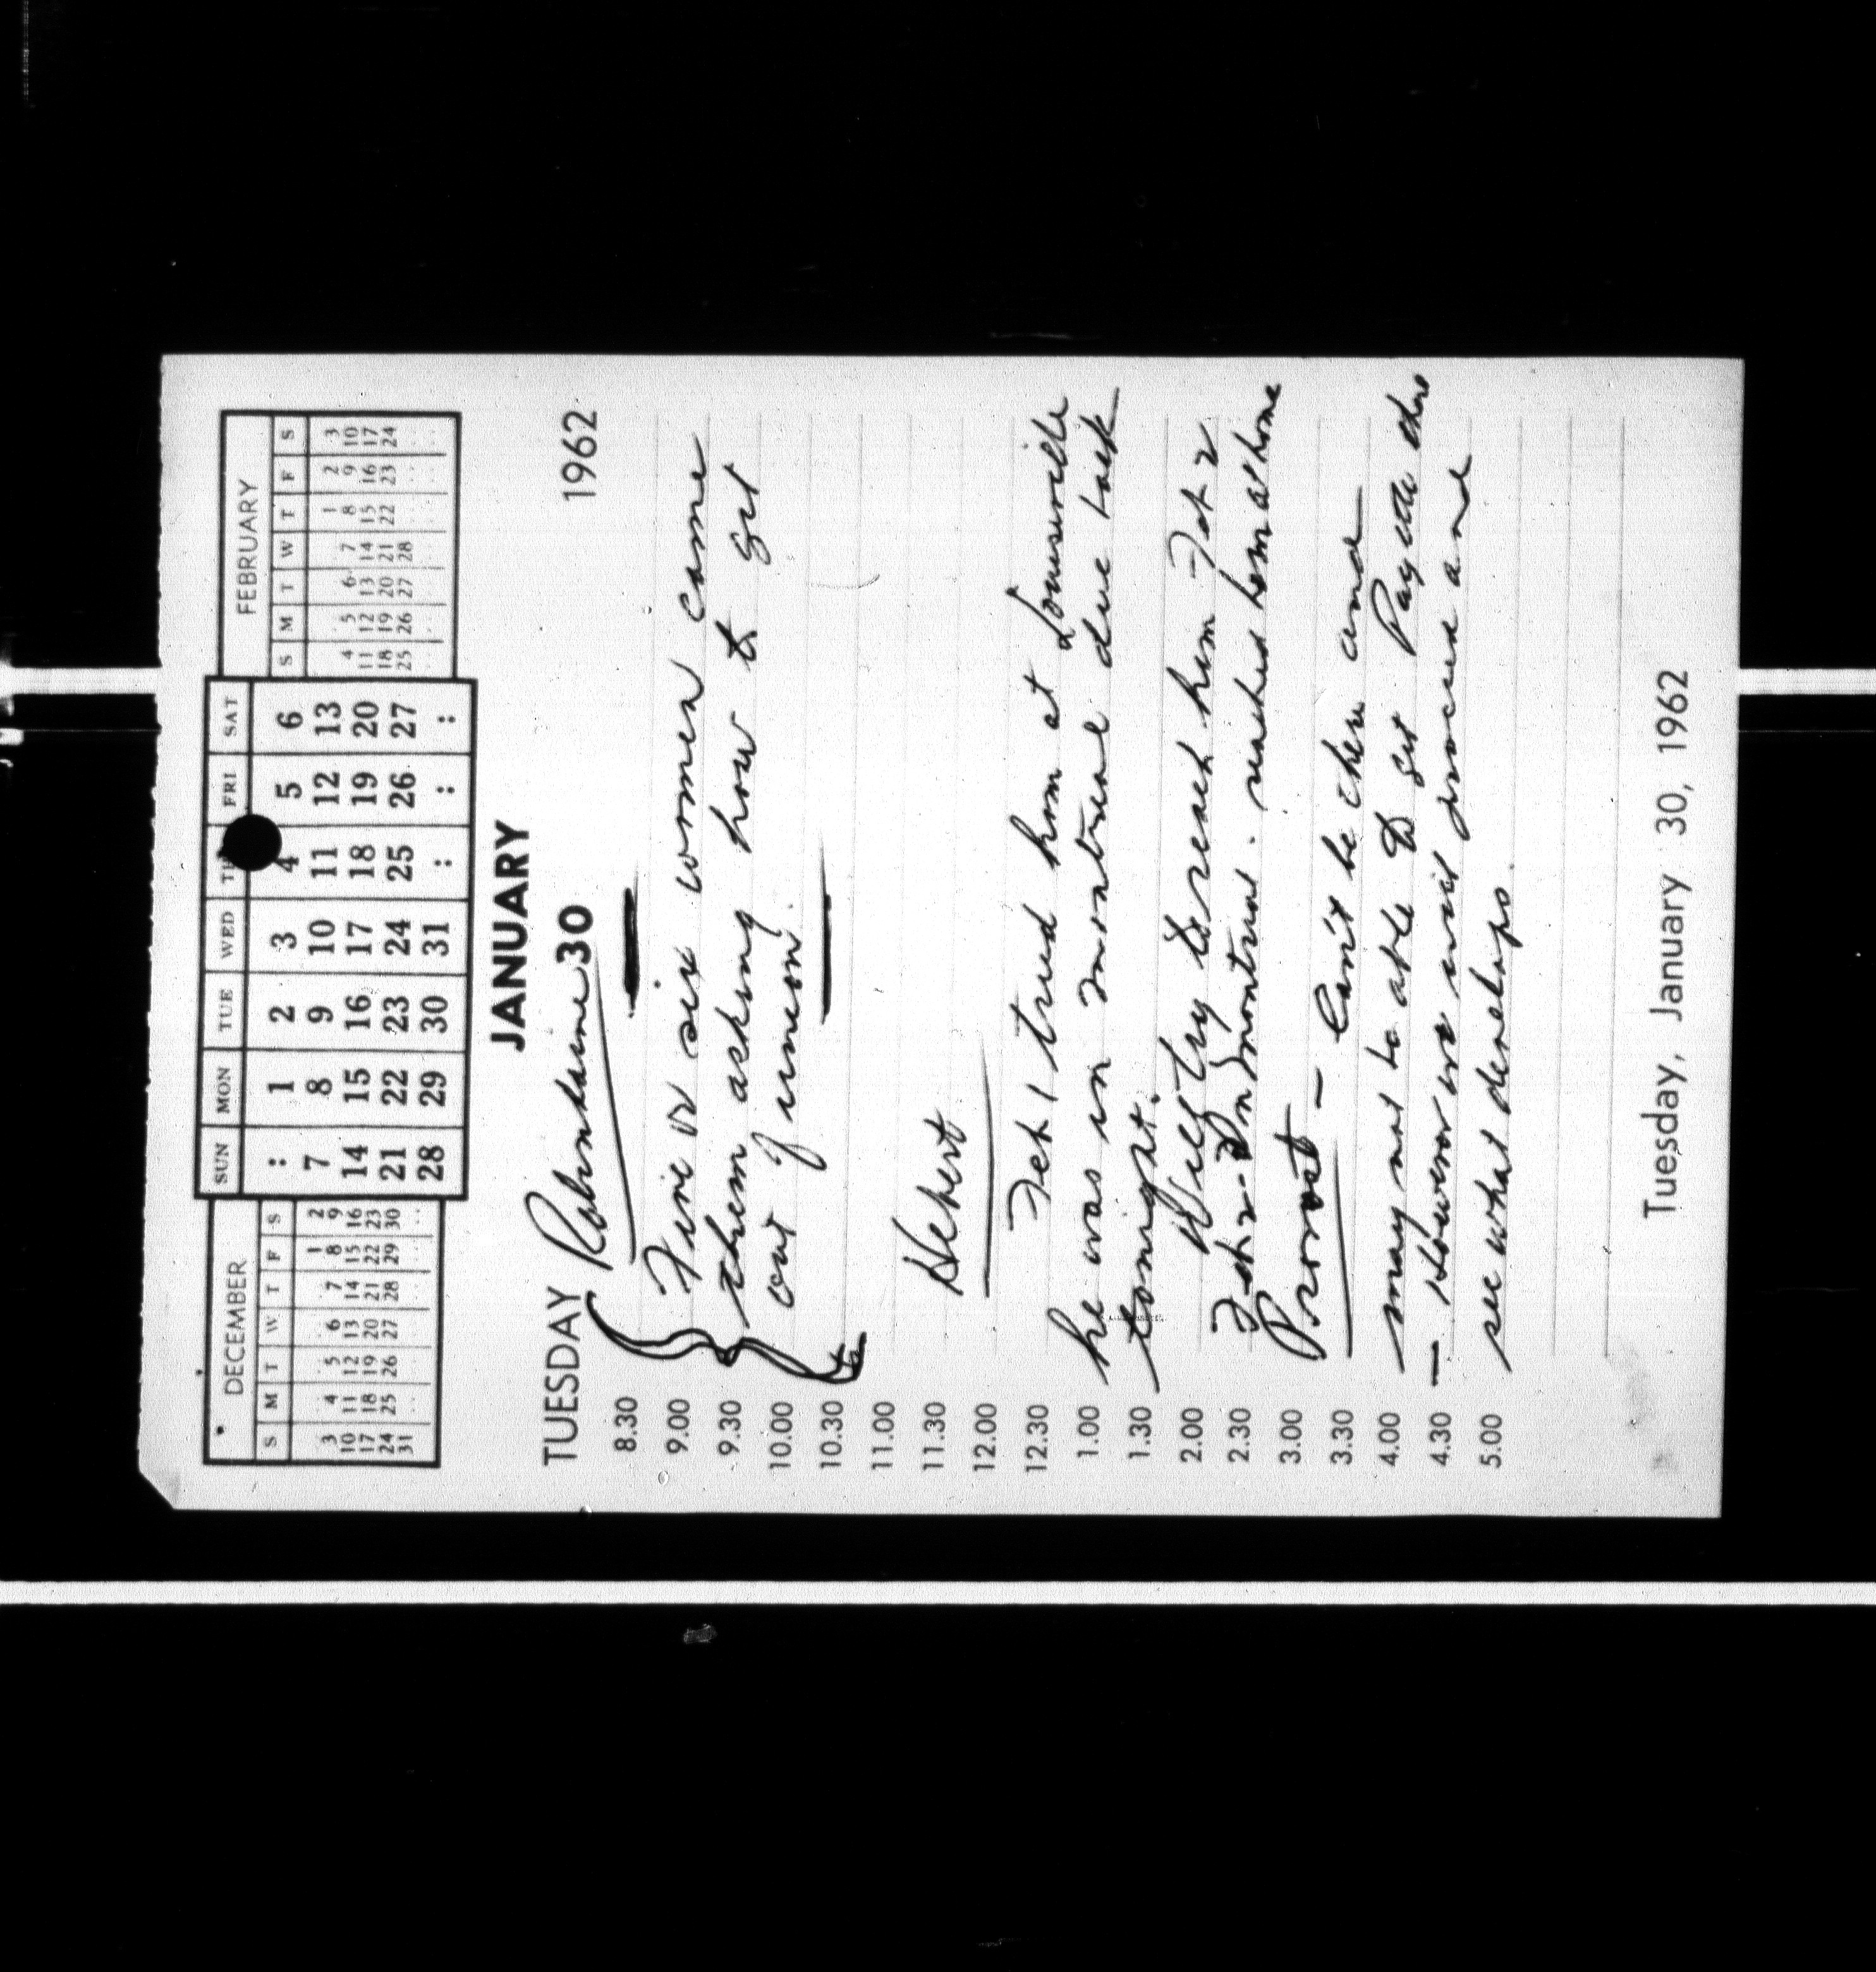 DECEMBER
S M T W T F S
1 2
3 4 5 6 7 8 9
10 11 12 13 14 15 16
17 18 19 20 21 22 23
24 25 26 27 28 29 30
31
SUN MON TUE WED TH FRI SAT
: 1 2 3 4 5 6
7 8 9 10 11 12 13
14 15 16 17 18 19 20
21 22 23 24 25 26 27
28 29 30 31 : : :
FEBRUARY
S M T W T F S
1 2 3
4 5 6 7 8 9 10
11 12 13 14 15 16 17
18 19 20 21 22 23 24
25 26 27 28
JANUARY
TUESDAY 30 1962
8.30
9.00 Five or six women came
9.30 them asking how to get
10.00 out of union.
10.30
11.00
11.30 Hebert
12.00
12.30 Feb 1 tried him at Louiseville
1.00 he was in Montreal due back
1.30 tonight.
2.00 Will try to reach him Feb 2
2.30 Feb 2 - In Montreal. reached him at home
3.00 Provost -
3.30 Can't be there and
4.00 may not be able to get Payette
4.30 - However we will proceed and
5.00 see what develops.
Tuesday, January 30, 1962